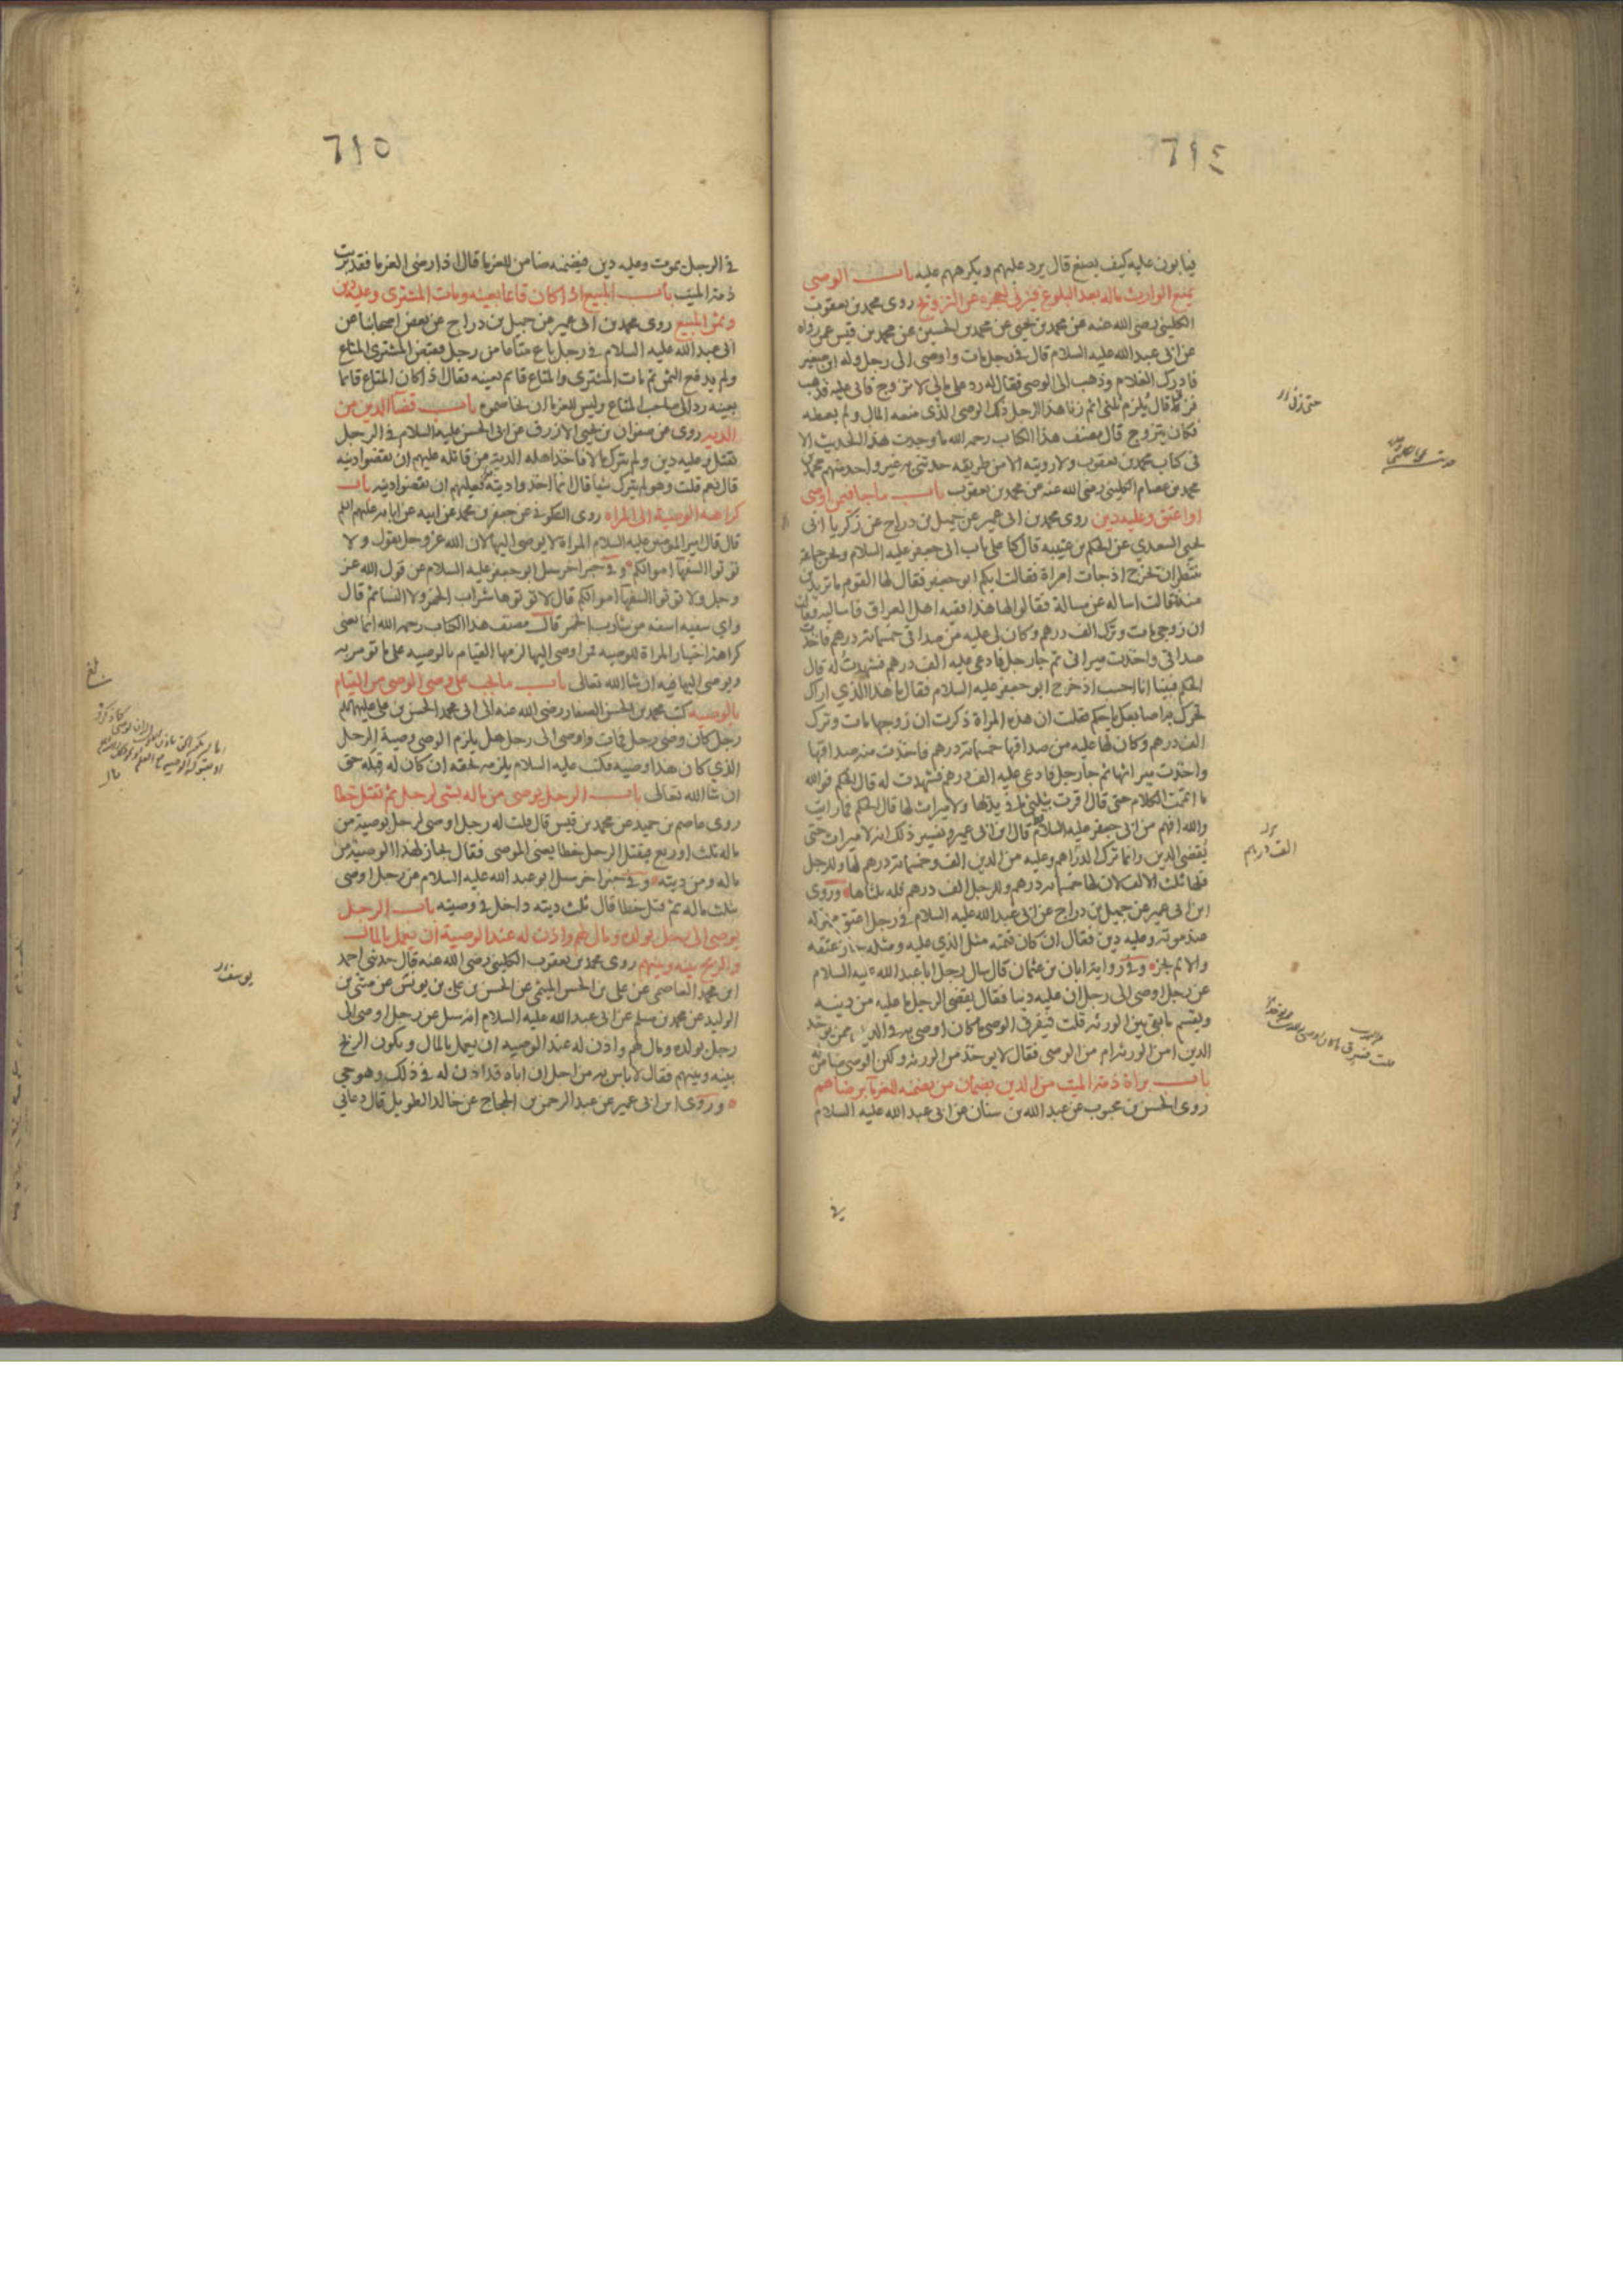 ٦١٤
فيابون عليه كيف يصنع قال يرد عليهم ويكرههم عليه باب الوصي
يمنع الوارث ماله بعد البلوغ فيزني لعجزه عن التزويج روى محمد بن يعقوب
الكليني رضي الله عنه عن محمد بن يحيى عن محمد بن الحسين عن محمد بن قيس عمن رواه
عن ابي عبد الله عليه السلام قال في رجل مات واوصى الى رجل وله ابن صغير
فادرك الغلام وذهب الى الوصي فقال له رد علي مالي لاتزوج فابى عليه فذهب
فزنى قال يلزم ثلثي اثم زنا هذا الرجل ذلك الوصي الذي منعه المال ولم يعطه
فكان يتزوج قال مصنف هذا الكتاب رحمه الله ما وجدت هذا الحديث الا
في كتاب محمد بن يعقوب ولا رويته الا من طريقه حدثني به غير واحد منهم محمد بن
محمد بن عصام الكليني رضي الله عنه عن محمد بن يعقوب باب ما جا فيمن اوصى
او اعتق وعليه دين روى محمد بن ابي عمير عن جميل بن دراج عن زكريا ابي
يحيى السعدي عن الحكم بن عتيبه قال كنا على باب ابي جعفر عليه السلام ونحن جماعة
ننتظر ان يخرج اذ جات امراة فقالت ايكم ابو جعفر فقال لها القوم ما تريدين
منه قالت اساله عن مسالة فقالوا لها هذا فقيه اهل العراق فاساليه فقالت
ان زوجي مات وترك الف درهم وكان لي عليه من صداقي خمسمائة درهم فاخذت
صداقي واخذت ميراثي ثم جا رجل فادعى عليه الف درهم فشهدت له قال
الحكم فبينا انا احسب اذ خرج ابو جعفر عليه السلام فقال ما هذا الذي اراك
تحرك به اصابعك يا حكم فقلت ان هذه المراة ذكرت ان زوجها مات وترك
الف درهم وكان لها عليه من صداقها خمسمائة درهم فاخذت منه صداقها
واخذت ميراثها ثم جا رجل فادعى عليه الف درهم فشهدت له قال الحكم فوالله
ما اتممت الكلام حتى قال اقرت بثلثي ما في يديها ولا ميراث لها قال الحكم فما رايت
والله افهم من ابي جعفر عليه السلام قط قال ابن ابي عمير وتفسير ذلك انه لا ميراث حتى
يقضى الدين وانما ترك الف درهم وعليه من الدين الف وخمسمائة درهم لها وللرجل
فلها ثلث الالف لان لها خمسمائة درهم وللرجل الف درهم فله ثلثاها وروى
ابن ابي عمير عن جميل بن دراج عن ابي عبد الله عليه السلام في رجل اعتق مملوكه
عند موته وعليه دين فقال ان كان قيمته مثل الذي عليه ومثله جاز عتقه
والا لم يجز وفي رواية ابان بن عثمان قال سال رجل ابا عبد الله عليه السلام
عن رجل اوصى الى رجل ان عليه دينا فقال يقضي الرجل ما عليه من دينه
ويقسم ما بقي بين الورثه قلت فيفرق الوصي ما كان اوصي به في الدين ممن يوخذ
الدين امن الورثه ام من الوصي فقال لا يوخذ من الورثه ولكن الوصي ضامن له
باب براة ذمة الميت من الدين بضمان من يضمنه للغرما برضاهم
روى الحسن بن محبوب عن عبد الله بن سنان عن ابي عبد الله عليه السلام
الف درهم
في
٦١٥
في الرجل يموت وعليه دين فيضمنه ضامن للغرما قال اذا رضي الغرما فقد برئت
ذمة الميت باب المبيع اذا كان قائما بعينه ومات المشتري وعليه دين
وثمن المبيع روى محمد بن ابي عمير عن جميل بن دراج عن بعض اصحابنا عن
ابي عبد الله عليه السلام في رجل باع متاعا من رجل فقبض المشتري المتاع
ولم يدفع الثمن ثم مات المشتري والمتاع قائم بعينه فقال اذا كان المتاع قائما
بعينه رد الى صاحب المتاع وليس للغرما ان يخاصموه باب قضا الدين من
الدية روى عن صفوان بن يحيى الازرق عن ابي الحسن عليه السلام في الرجل
يقتل وعليه دين ولم يترك مالا فاخذ اهله الدية من قاتله عليهم ان يقضوا دينه
قال نعم قلت وهو لم يترك شيا قال انما اخذوا ديته فعليهم ان يقضوا دينه باب
كراهية الوصية الى المراه روى السكوني عن جعفر بن محمد عن ابيه عن ابائه عليهم السلم
قال قال امير المومنين عليه السلام المراة لا يوصى اليها لان الله عز وجل يقول ولا
توتوا السفها اموالكم وفي خبر اخر سئل ابو جعفر عليه السلام عن قول الله عز
وجل ولا توتوا السفها اموالكم قال لا توتوها شراب الخمر ولا النسا ثم قال
واي سفيه اسفه من شارب الخمر قال مصنف هذا الكتاب رحمه الله انما يعني
كراهة اختيار المراة للوصيه فمن اوصى اليها لزمها القيام بالوصيه على ما تومر به
ويوصى اليها فيه ان شا الله تعالى باب ما يجب على وصي الوصي من القيام
بالوصيه كتب محمد بن الحسن الصفار رضي الله عنه الى ابي محمد الحسن بن علي عليهما السلم
رجل كان وصي رجل فمات واوصى الى رجل هل يلزم الوصي وصية الرجل
الذي كان هذا وصيه فكتب عليه السلام يلزمه بحقه ان كان له قبله حق
ان شا الله تعالى باب الرجل يوصي من ماله بشي لرجل ثم يقتل خطا
روى عاصم بن حميد عن محمد بن قيس قال قلت له رجل اوصى لرجل بوصية من
ماله ثلث او ربع فيقتل الرجل خطا يعني الموصي فقال يجاز لهذا الوصية من
ماله ومن ديته وفي خبر اخر سئل ابو عبد الله عليه السلام عن رجل اوصى
بثلث ماله ثم قتل خطا قال ثلث ديته داخل في وصيته باب الرجل
يوصي الى رجل بولده ومال لهم واذن له عند الوصية ان يعمل بالمال
والربح بينه وبينهم روى محمد بن يعقوب الكليني رضي الله عنه قال حدثني احمد
ابن محمد العاصمي عن علي بن الحسن الميثمي عن الحسن بن علي بن يونس عن مثنى بن
الوليد عن محمد بن مسلم عن ابي عبد الله عليه السلام انه سئل عن رجل اوصى الى
رجل بولده ومال لهم واذن له عند الوصيه ان يعمل بالمال ويكون الربح
بينه وبينهم فقال لا باس به من اجل ان اباه قد اذن له في ذلك وهو حي
وروى ابن ابي عمير عن عبد الرحمن بن الحجاج عن خالد الطويل قال دعاني
بلغ
يوسف